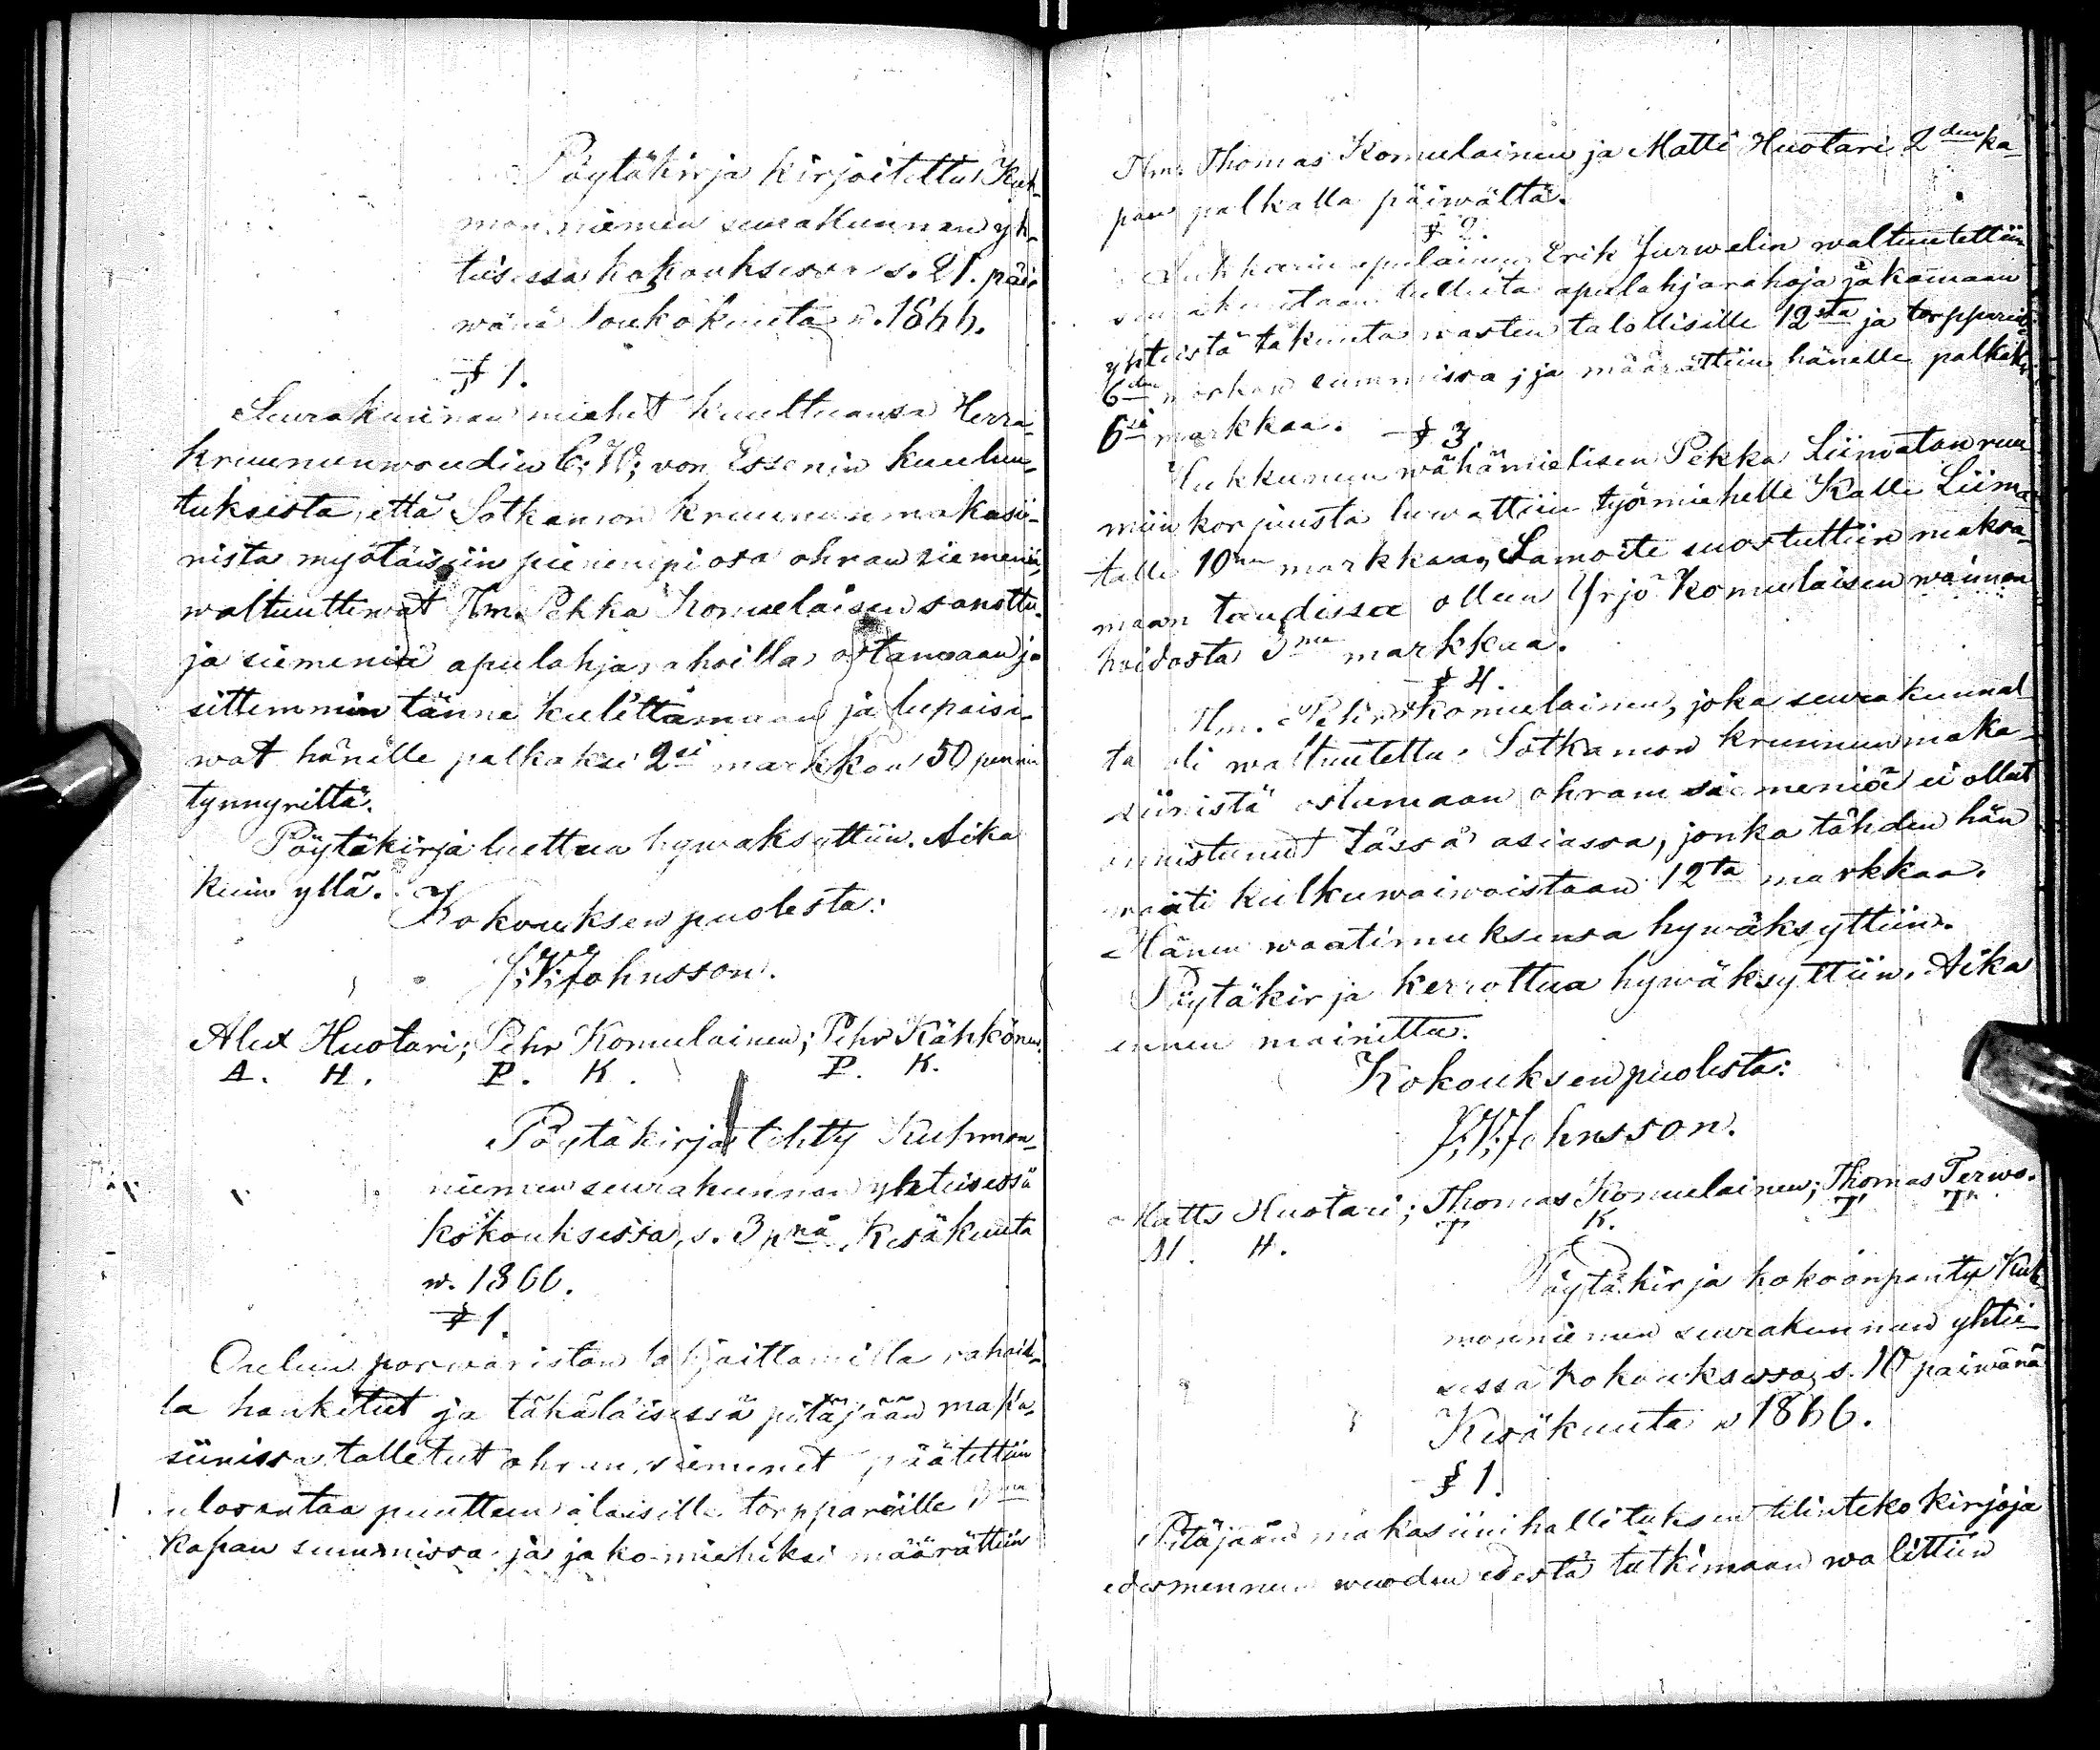 Pöytäkirja kirjoitettu Kuh-
monniemen seurakunnan yh-
teisessä kokouksessa s. 21. päi-
wänä Toukokuuta w. 1866.
§ 1.
Seurakunnan miehet kuultuansa Herra
kruununwoudin C; W; von Essenin kuulu-
tuksesta, että Sotkamon kruununmakasii-
nista myötäisiin pienempi osa ohran siemeniä,
waltuuttiwat Hm. Pekka Komulaisen sanottu-
ja siemeniä apulahjarahoilla ostamaan ja
sittemmin tänne kulettamaan ja lupaisi-
wat hänelle palkaksi 2si markkaa 50 penniä
tynnyriltä.
Pöytäkirja luettua hywäksyttiin. Aika
kuin yllä.
Kokouksen puolesta:
J; V; Johnsson.
Alex Huotari; Pehr Komulainen; Pehr Kähkönen.
A. H. P. K. P. K.
Pöytäkirja tehty Kuhmon-
niemen seurakunnan yhteisessä
kokouksessa, s. 3 pnä Kesäkuuta
w. 1866.
§ 1.
Oulun porwariston lahjoittamilla rahoil-
la hankitut ja tähäläisessä pitäjään maka-
siinissa talletut ohran siemenet päätettiin
ulosantaa puutteen alaisille torppareille
kapan summissa ja jako-mieheksi määrättiin
Hm. Thomas Komulainen ja Matti Huotari 2den ka-
pan palkalla päiwältä.
§ 2.
Lukkarin apulainen Erik Jurwelin waltuutettiin
seurakuntaan tulleita apulahjarahoja jakamaan
yhteistä takuuta wasten talollisille 12sta ja torppareille
6den markan summissa; ja määrättiin hänelle palkaksi
6si markkaa.
§ 3
Hukkunen wähämielisen Pekka Liimatan ruu-
miin korjuusta luwattiin työmiehelle Kalle Liima-
talle 10nen markkaa, Samoite suostuttiin maksa-
maan taudissa olleen Yrjö Komulaisen waimon
hoidosta markkaa.
§ 4.
Hm. Petter Komulainen, joka seurakunnal-
ta oli waltuutettu Sotkamon kruununmaka-
siinistä ostamaan ohran siemeniä ei ollut
onnistunut tässä asiassa, jonka tähden hän
waati kulkuwaiwoistaan 12ta markkaa.
Hänen waatimuksensa hywäksyttiin.
Pöytäkirja kerrottua hywäksyttiin. Aika
ennen mainittu.
Kokouksen puolesta:
J; V; Johnsson.
Matts Huotari; Thomas Komulainen; Thomas Terwo.
M. H. T. K. T. T.
Pöytäkirja kokoonpantu Kuh-
monniemen seurakunnan yhtei-
sessä kokouksessa, s. 10 päiwänä
Kesäkuuta w 1866.
§ 1.
Pitäjään makasiinihallituksen tilinteko kirjoja
edesmenneen wuoden edestä tutkimaan walittiin